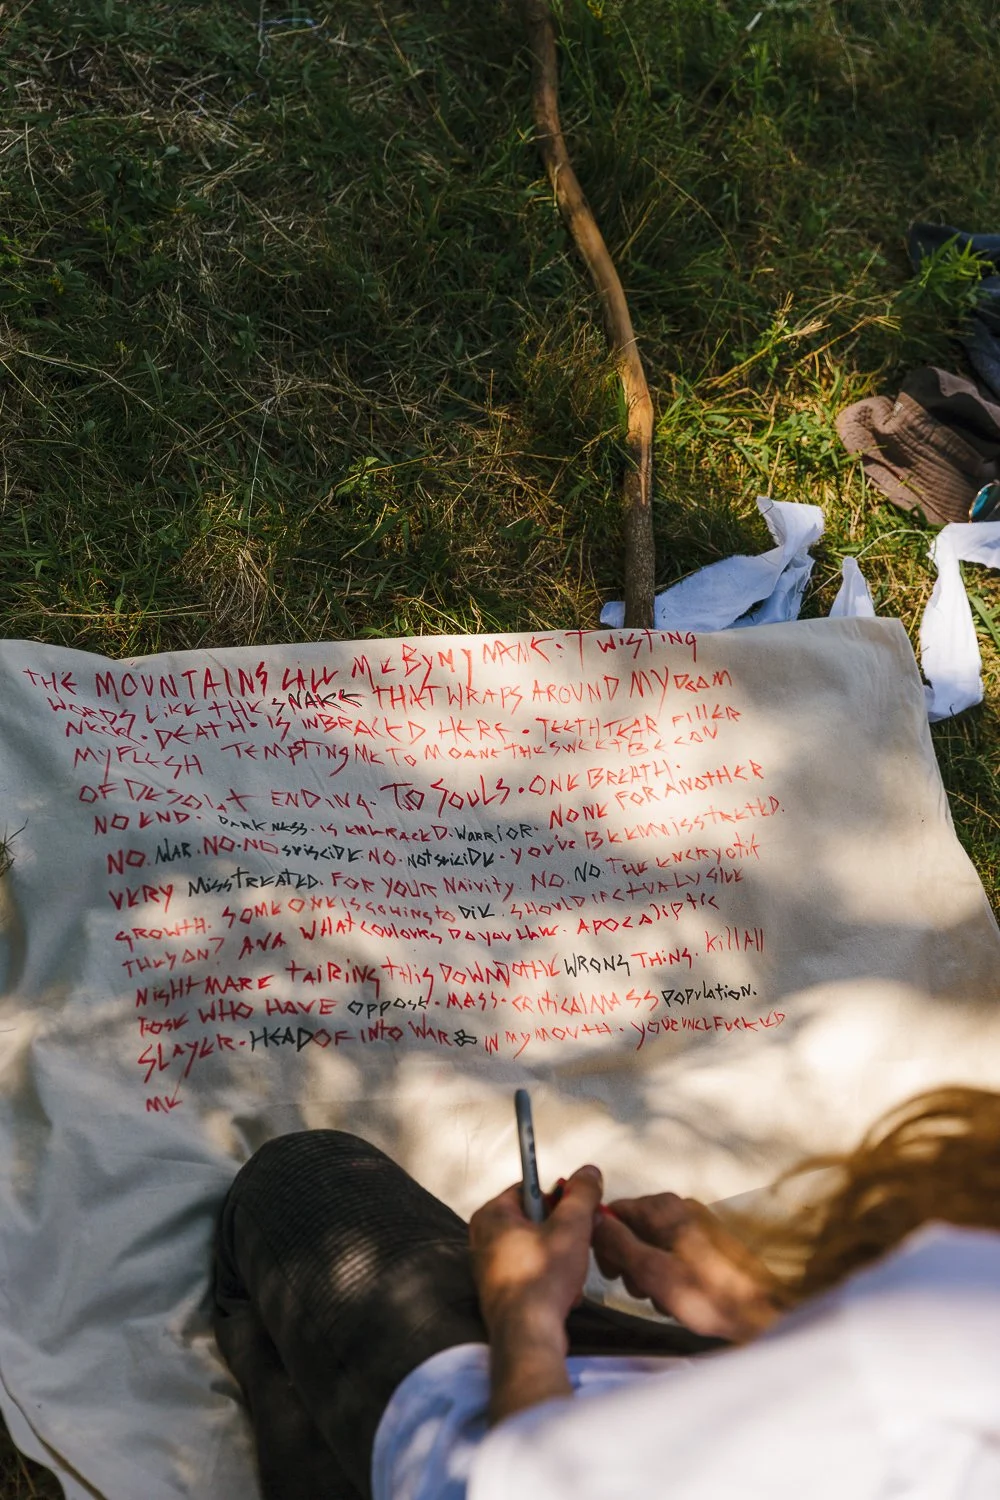 THE MOUNTAINS CALL ME BY MY NAME. TWISTING
WORDS LIKE THE SNAKE THAT WRAPS AROUND MY DOOM
NECK. DEATH. IS INBRACED HERE. TEETH TEAR FILLER
MY FLESH TEMPTING ME TO MOANE THE SWEET BECON
OF DESOLAT ENDING. TO SOULS. ONE BREATH.
NO END. DARKNESS. IS EMBRACED. WARRIOR. NONE FOR ANOTHER
NO. WAR. NO. NO SUISCIDE. NO. NOT SUICIDE. YOU'VE BEEN MISSTREATED.
VERY MISSTREATED. FOR YOUR NAIVITY. NO. NO. THE
GROWTH. SOMEONE IS GOING TO DIE. SHOULD I ACTUALLY GIVE
THEY ON? AND WHAT COULOURS DO YOU HAVE. APOCALIPTIC
NIGHTMARE TAIRING THIS DOWN THE WRONG THING. KILL ALL
TOSE WHO HAVE OPPOSE. MASS. CRITICAL MASS POPULATION.
SLAYER. HEAD OF INTO WAR IN MY MOUTH. YOU'VE FUCKED
ME